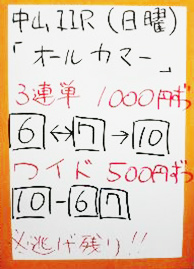 中山11R(日曜)
「オールカマー」
3連単 1000円ずつ
6↔7→10
ワイド 500円ずつ
10-6 7
※逃げ残り!!